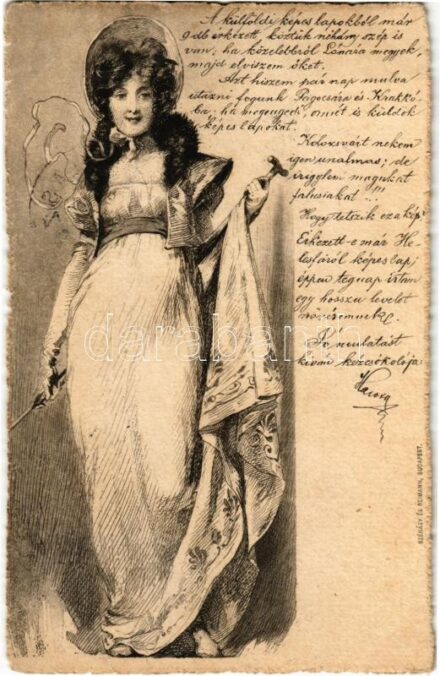 A külföldi képes lapokból már
9 db érkezett, köztük néhány szép is
van; ha közelebbről Lónára megyek,
majd elviszem őket.
Azt hiszem pár nap mulva
utazni fogunk és Krakkó-
ba, ha megengedi, onnét is küldök
képes lapokat.
Kolozsvárt nekem
igen unalmas; de
irigylem magukat
falusiakat !!!
Hogy tetszik ez a kép?
Érkezett-e már He-
képes lap,
éppen tegnap írtam
egy hosszu levelet
Jó mulatást
kíván kézcsókolója:
darabanth
SZÉNÁSY ÉS REIMANN, BUDAPEST.